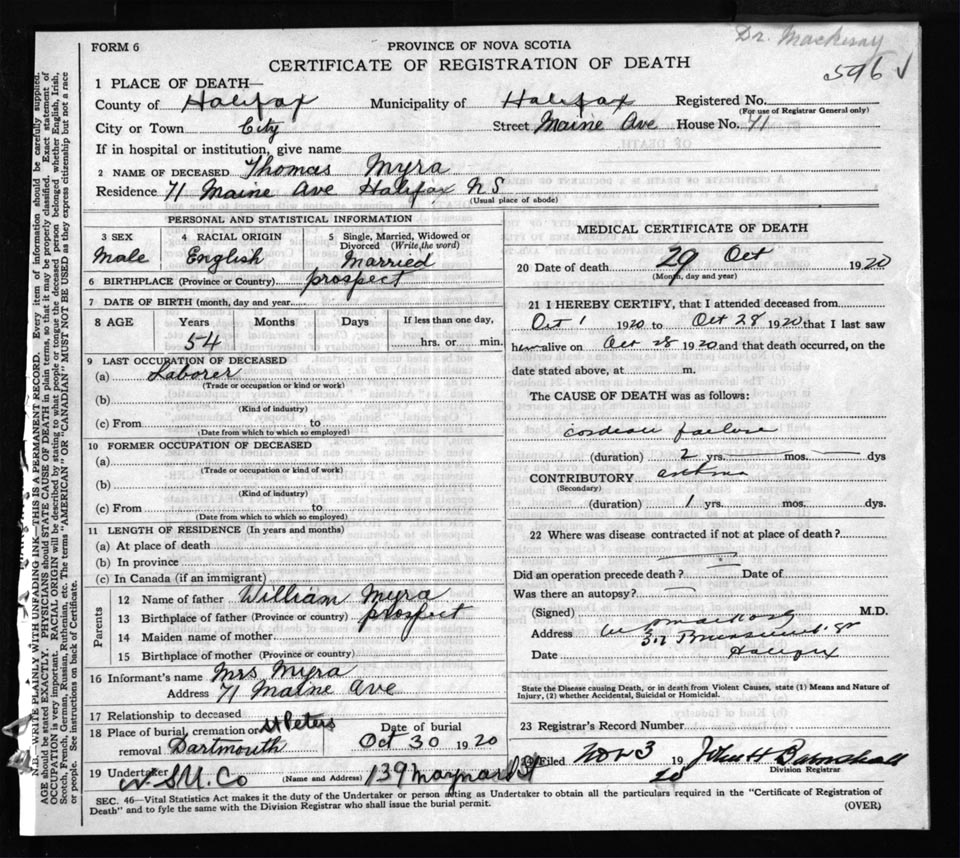 Dr. Mackesay
FORM 6
PROVINCE OF NOVA SCOTIA
596 √
CERTIFICATE OF REGISTRATION OF DEATH
1 PLACE OF DEATH—
County of Halifax Municipality of Halifax Registered No.
(For use of Registrar General only)
City or Town City Street Maine Ave House No. 71
If in hospital or institution, give name
2 NAME OF DECEASED Thomas Myra
Residence 71 Maine Ave Halifax N S
(Usual place of abode)
PERSONAL AND STATISTICAL INFORMATION
3 SEX 4 RACIAL ORIGIN 5 Single, Married, Widowed or
Divorced (Write the word)
Male English Married
6 BIRTHPLACE (Province or Country) prospect
7 DATE OF BIRTH (month, day and year)
8 AGE Years Months Days If less than one day,
54 hrs. or min.
9 LAST OCCUPATION OF DECEASED
(a) Laborer
(Trade or occupation or kind or work)
(b)
(Kind of industry)
(c) From to
(Date from which to which so employed)
10 FORMER OCCUPATION OF DECEASED
(a)
(Trade or occupation or kind of work)
(b)
(Kind of industry)
(c) From to
(Date from which to which so employed)
11 LENGTH OF RESIDENCE (In years and months)
(a) At place of death
(b) In province
(c) In Canada (if an immigrant)
Parents
12 Name of father William Myra
13 Birthplace of father (Province or country) prospect
14 Maiden name of mother
15 Birthplace of mother (Province or country)
16 Informant's name Mrs Myra
Address 71 Maine Ave
17 Relationship to deceased
18 Place of burial, cremation or St Peters Date of burial
removal Dartmouth Oct 30 1920
19 Undertaker N.S.U. Co (Name and Address) 139 Maynard St
MEDICAL CERTIFICATE OF DEATH
20 Date of death 29 Oct 1920
(Month, day and year)
21 I HEREBY CERTIFY, that I attended deceased from
Oct 1 1920 to Oct 28 1920 that I last saw
h alive on Oct 28 1920 and that death occurred, on the
date stated above, at m.
The CAUSE OF DEATH was as follows:
failure
(duration) 2 yrs. — mos. — dys
CONTRIBUTORY asthma
(Secondary)
(duration) 1 yrs. mos. dys.
22 Where was disease contracted if not at place of death?
Did an operation precede death? Date of
Was there an autopsy?
(Signed) M.D.
Address St
Date Halifax
State the Disease causing Death, or in death from Violent Causes, state (1) Means and Nature of
Injury, (2) whether Accidental, Suicidal or Homicidal.
23 Registrar's Record Number
24 Filed Nov 3 1920 John H
Division Registrar
SEC. 46—Vital Statistics Act makes it the duty of the Undertaker or person acting as Undertaker to obtain all the particulars required in the "Certificate of Registration of
Death" and to fyle the same with the Division Registrar who shall issue the burial permit. (OVER)
N.B.—WRITE PLAINLY WITH UNFADING INK—THIS IS A PERMANENT RECORD. Every item of information should be carefully supplied.
AGE should be stated EXACTLY. PHYSICIANS should STATE CAUSE OF DEATH in plain terms, so that it may be properly classified. Exact statement of
OCCUPATION is very important. RACIAL ORIGIN will be described by stating to what people or tongue the deceased person belonged whether English, Irish,
Scotch, French, German, Russian, Ruthenian, etc. The terms "AMERICAN" OR "CANADIAN" MUST NOT BE USED as they express citizenship but not a race
or people. See instructions on back of Certificate.